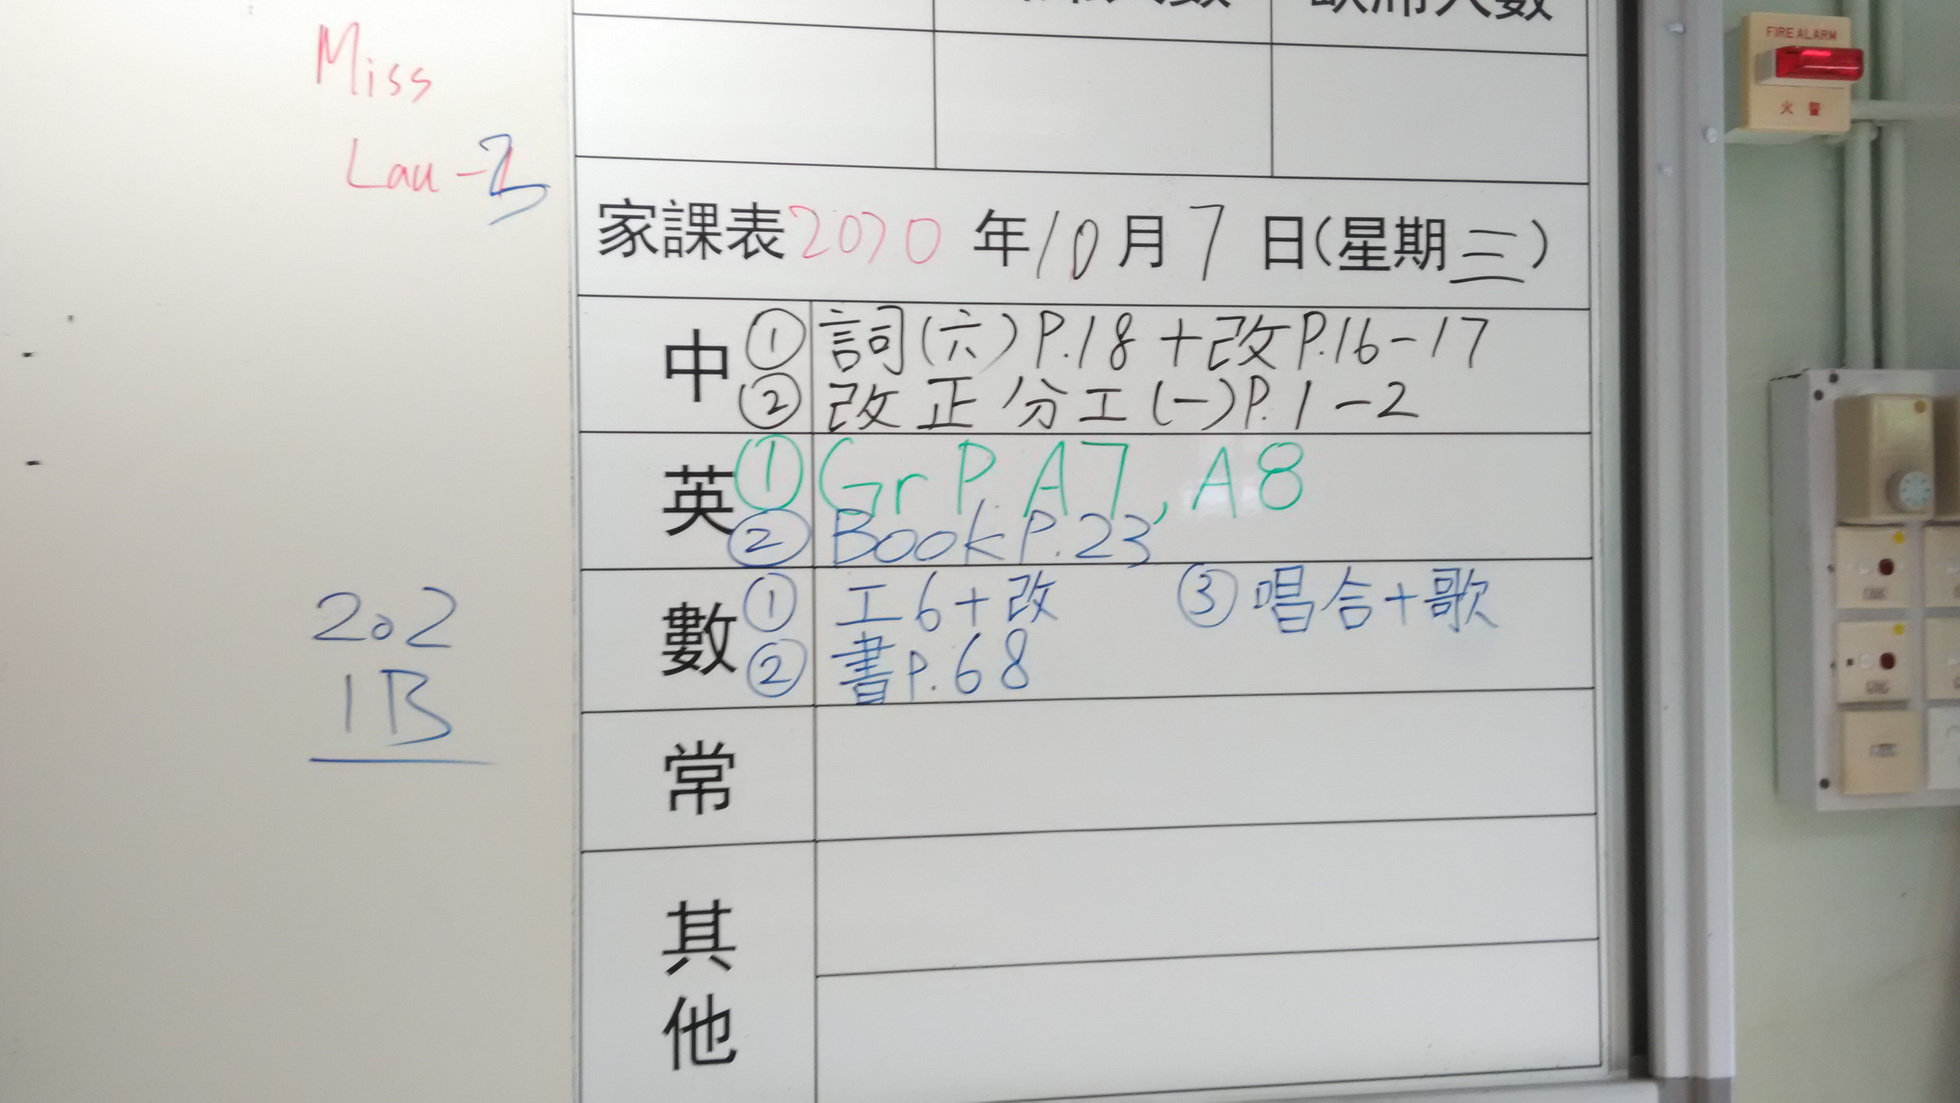 Miss
Lau -
人數
人數
FIRE ALARM
火警
家課表2020年10月7日(星期三)
中 ① 詞(六)P.18+改P.16-17
② 改正分工(一)P.1-2
英 ① Gr P. A7, A8
② Book P.23
數 ① 工6+改 ③ 唱合+歌
② 書P.68
202
1B
常
其他